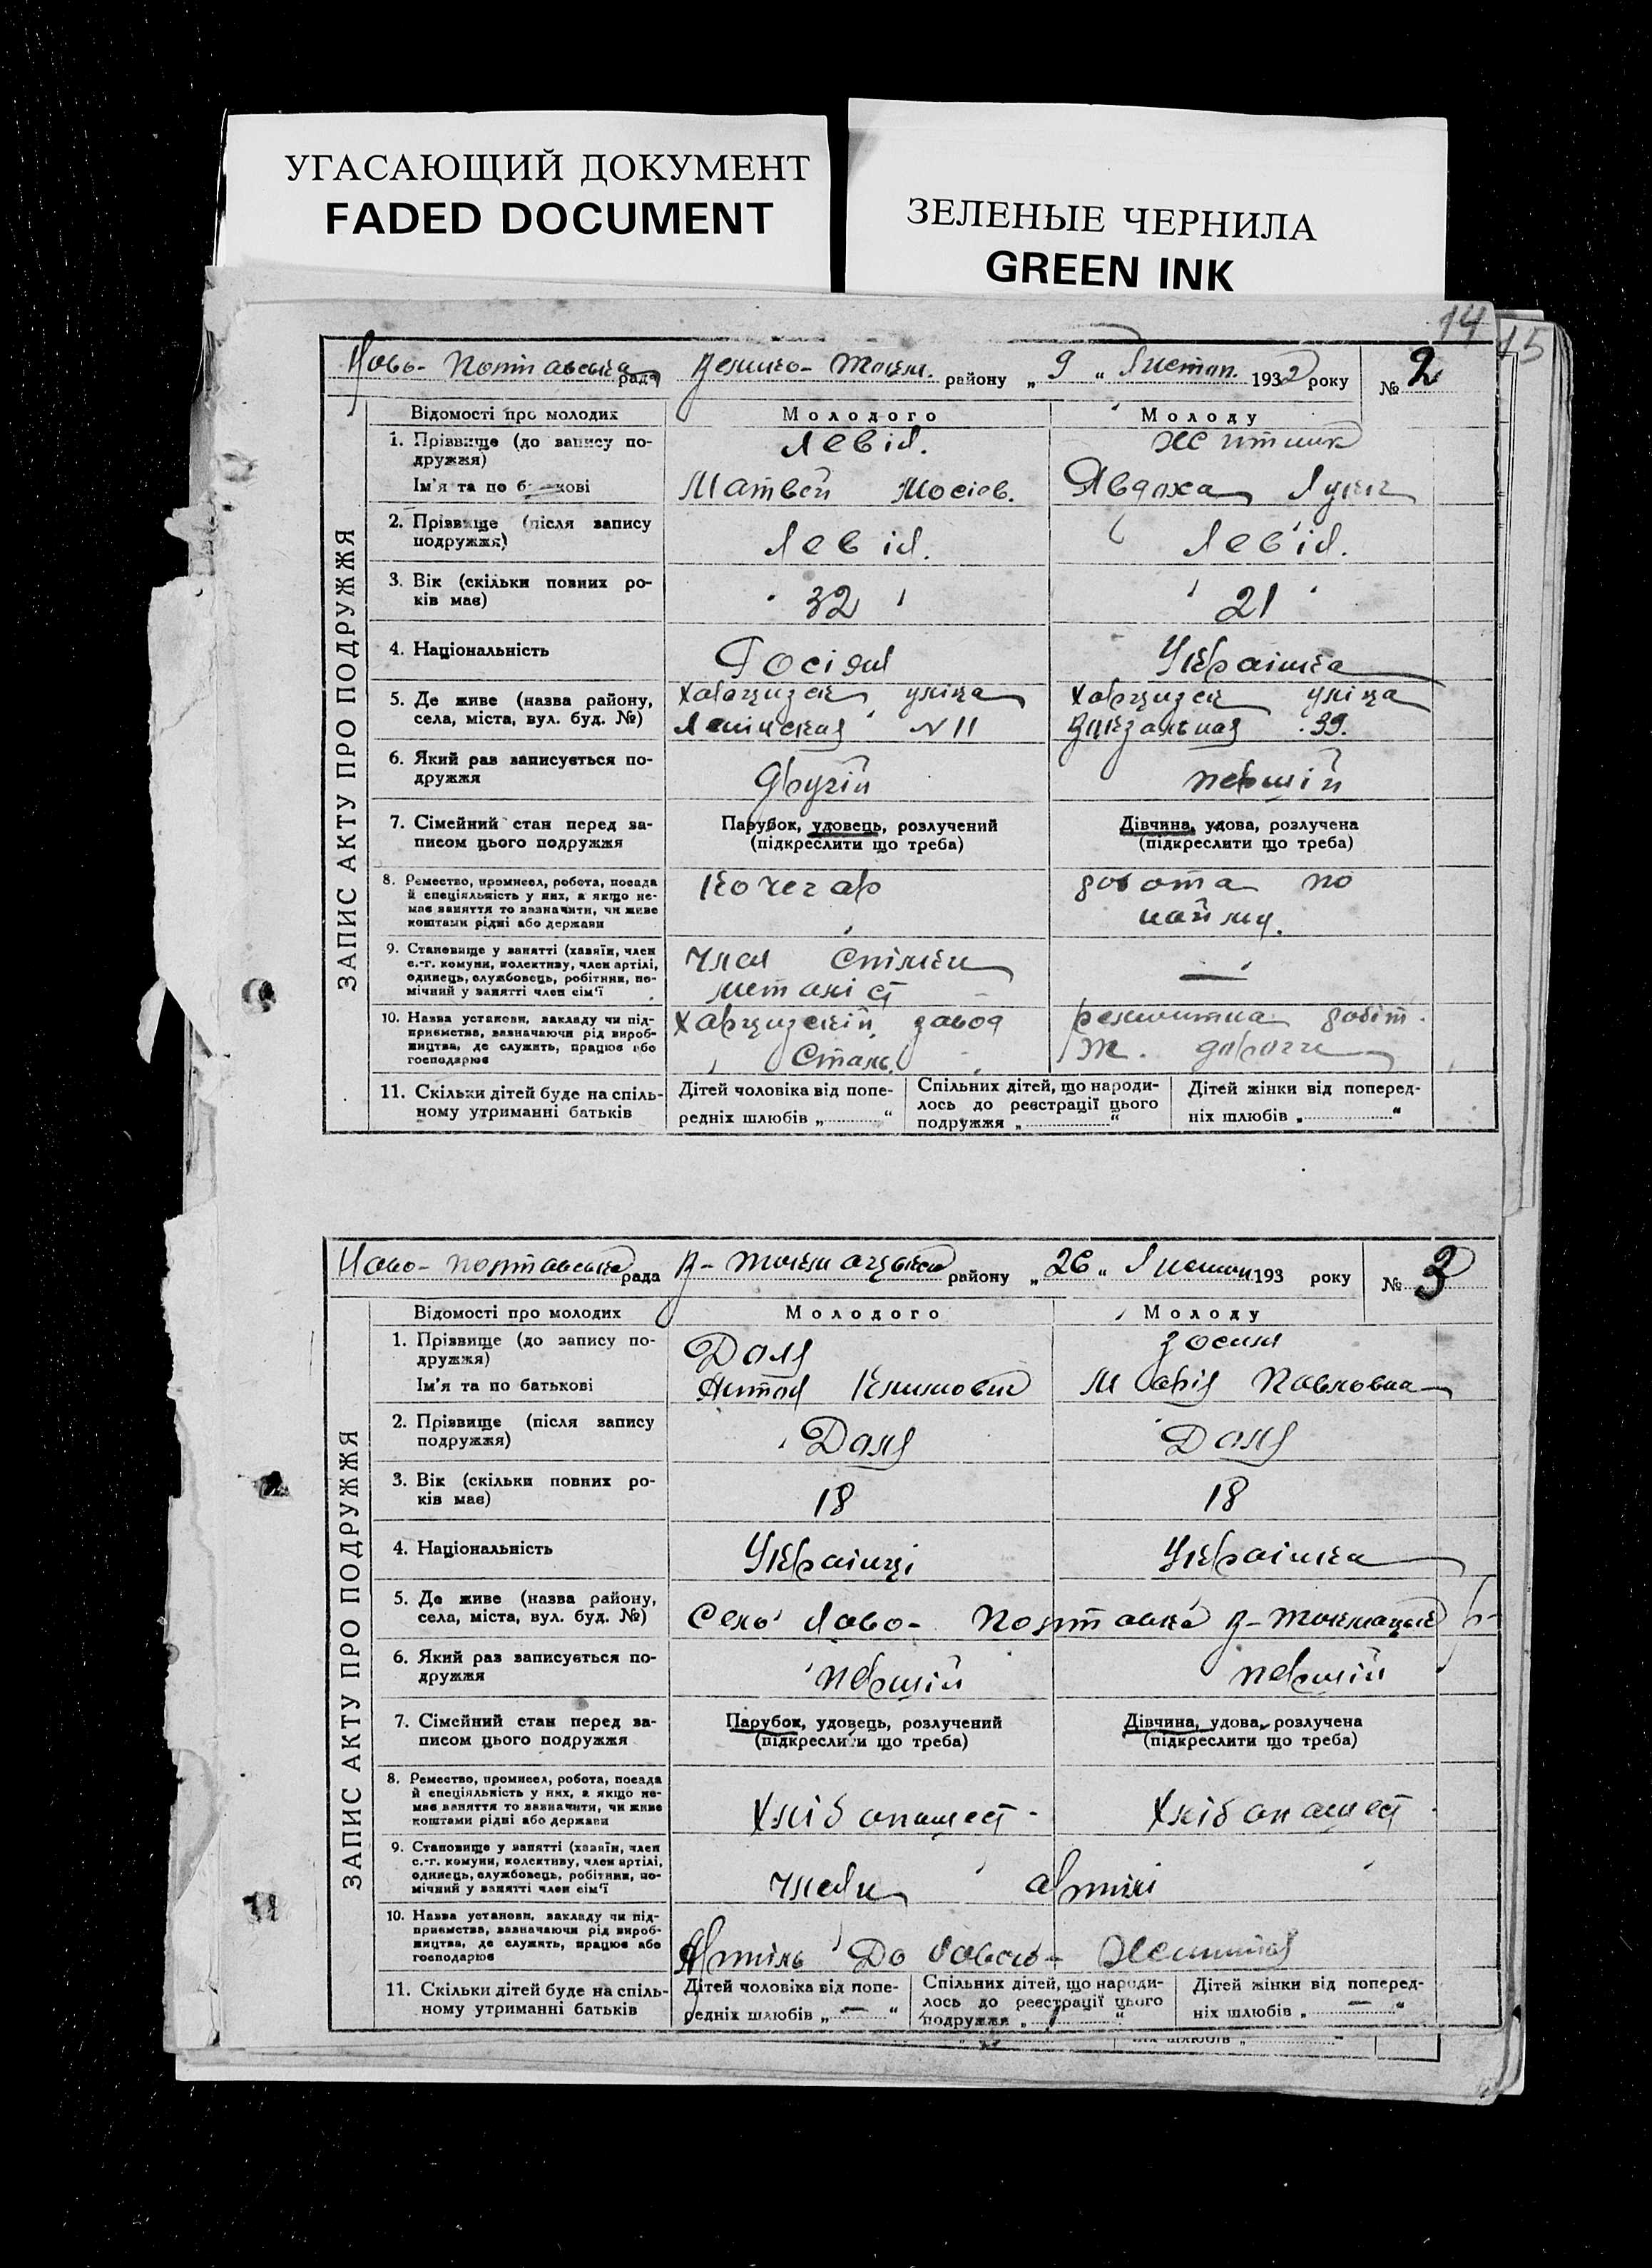 УГАСАЮЩИЙ ДОКУМЕНТ
FADED DOCUMENT
ЗЕЛЕНЫЕ ЧЕРНИЛА
GREEN INK
14
15
Ново- Полтавська рада Велико- Токм. району „ 9 “ Листоп. 1932 року № 2
ЗАПИС АКТУ ПРО ПОДРУЖЖЯ
Відомості про молодих Молодого Молоду
1. Прізвище (до запису по-
дружжя)
Левід. Житник
Ім'я та по батькові Матвей Мосіев. Явдоха
2. Прізвище (після запису
подружжя)
Левід. Левід.
3. Вік (скільки повних ро-
ків має)
32 21
4. Національність Українка
5. Де живе (назва району,
села, міста, вул. буд. №)
Харцизск уліца Харцизск уліца
Ленінская N 11 Вокзальная 39.
6. Який раз записується по-
дружжя
другій першій
7. Сімейний стан перед за-
писом цього подружжя
Парубок, удовець, розлучений Дівчина, удова, розлучена
(підкреслити що треба) (підкреслити що треба)
8. Ремество, промисел, робота, посада
й спеціяльність у них, а якщо не-
має заняття то зазначити, чи живе
коштами рідні або держави
Кочегар робота по
найму.
9. Становище у занятті (хазяїн, член
с.-г. комуни, колективу, член артілі,
одинець, службовець, робітник, по-
мічний у занятті член сім'ї
член спілки
металіст
—
10. Назва установи, закладу чи під-
приємства, зазначаючи рід вироб-
ництва, де служить, працює або
господарює
Харцизскій завод ремонтна робіт.
Сталь. ж. дороги
11. Скільки дітей буде на спіль-
ному утриманні батьків
Дітей чоловіка від попе-
редніх шлюбів „ “
Спільних дітей, що народи-
лось до реєстрації цього
подружжя „ “
Дітей жінки від поперед-
ніх шлюбів „ “
Ново- Полтавська рада В- Токмацького району „ 26 “ Листоп. 193 року № 3
ЗАПИС АКТУ ПРО ПОДРУЖЖЯ
Відомості про молодих Молодого Молоду
1. Прізвище (до запису по-
дружжя)
Доля
Ім'я та по батькові Антон Климович Марія Повловна
2. Прізвище (після запису
подружжя)
Доля Доля
3. Вік (скільки повних ро-
ків має)
18 18
4. Національність Українці Українка
5. Де живе (назва району,
села, міста, вул. буд. №)
Село Ново- Полтавка В- Токмацьк р-
6. Який раз записується по-
дружжя
першій першій
7. Сімейний стан перед за-
писом цього подружжя
Парубок, удовець, розлучений Дівчина, удова, розлучена
(підкреслити що треба) (підкреслити що треба)
8. Ремество, промисел, робота, посада
й спеціяльність у них, а якщо не-
має заняття то зазначити, чи живе
коштами рідні або держави
Хлібопашест. Хлібопашест.
9. Становище у занятті (хазяїн, член
с.-г. комуни, колективу, член артілі,
одинець, службовець, робітник, по-
мічний у занятті член сім'ї
члени артілі
10. Назва установи, закладу чи під-
приємства, зазначаючи рід вироб-
ництва, де служить, працює або
господарює
Артіль
11. Скільки дітей буде на спіль-
ному утриманні батьків
Дітей чоловіка від попе-
редніх шлюбів „ — “
Спільних дітей, що народи-
лось до реєстрації цього
подружжя „ 1 “
Дітей жінки від поперед-
ніх шлюбів „ — “
ніх шлюбів „